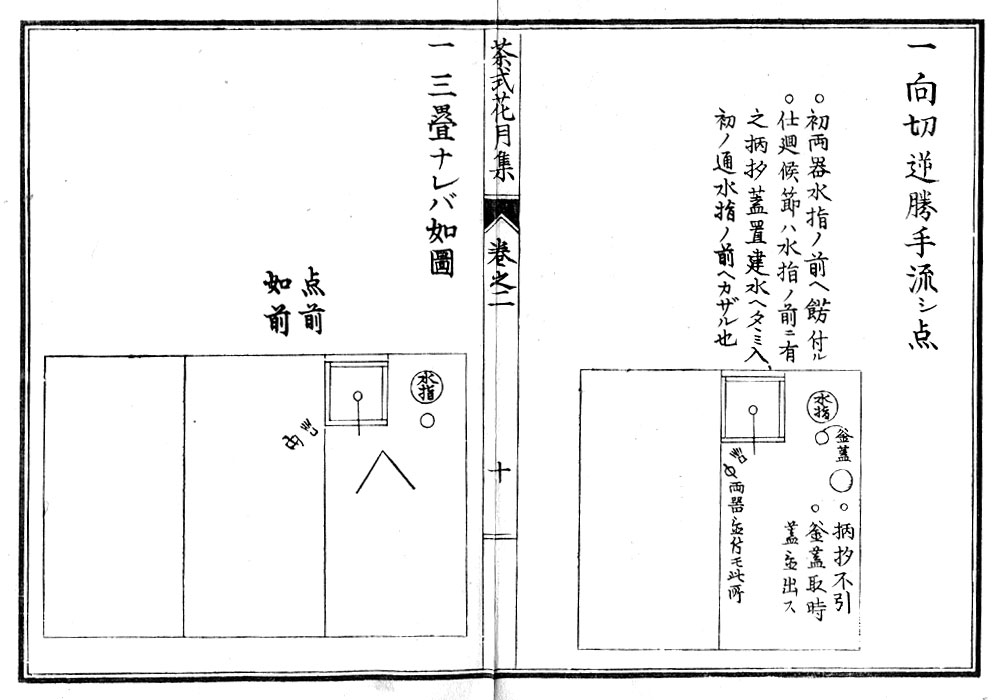 一 向切逆勝手流シ点
○初両器水指ノ前ヘ餝付ル
○仕廻候節ハ水指ノ前ニ有
之柄抄蓋置建水ヘタミ入、
初ノ通水指ノ前ヘカザル也
水指
釜蓋
○柄抄不引
○釜蓋取時
蓋並出ス
両器並付モ此所
茶式花月集
巻之二
十
一 三畳ナレバ如圖
点前
如前
水指